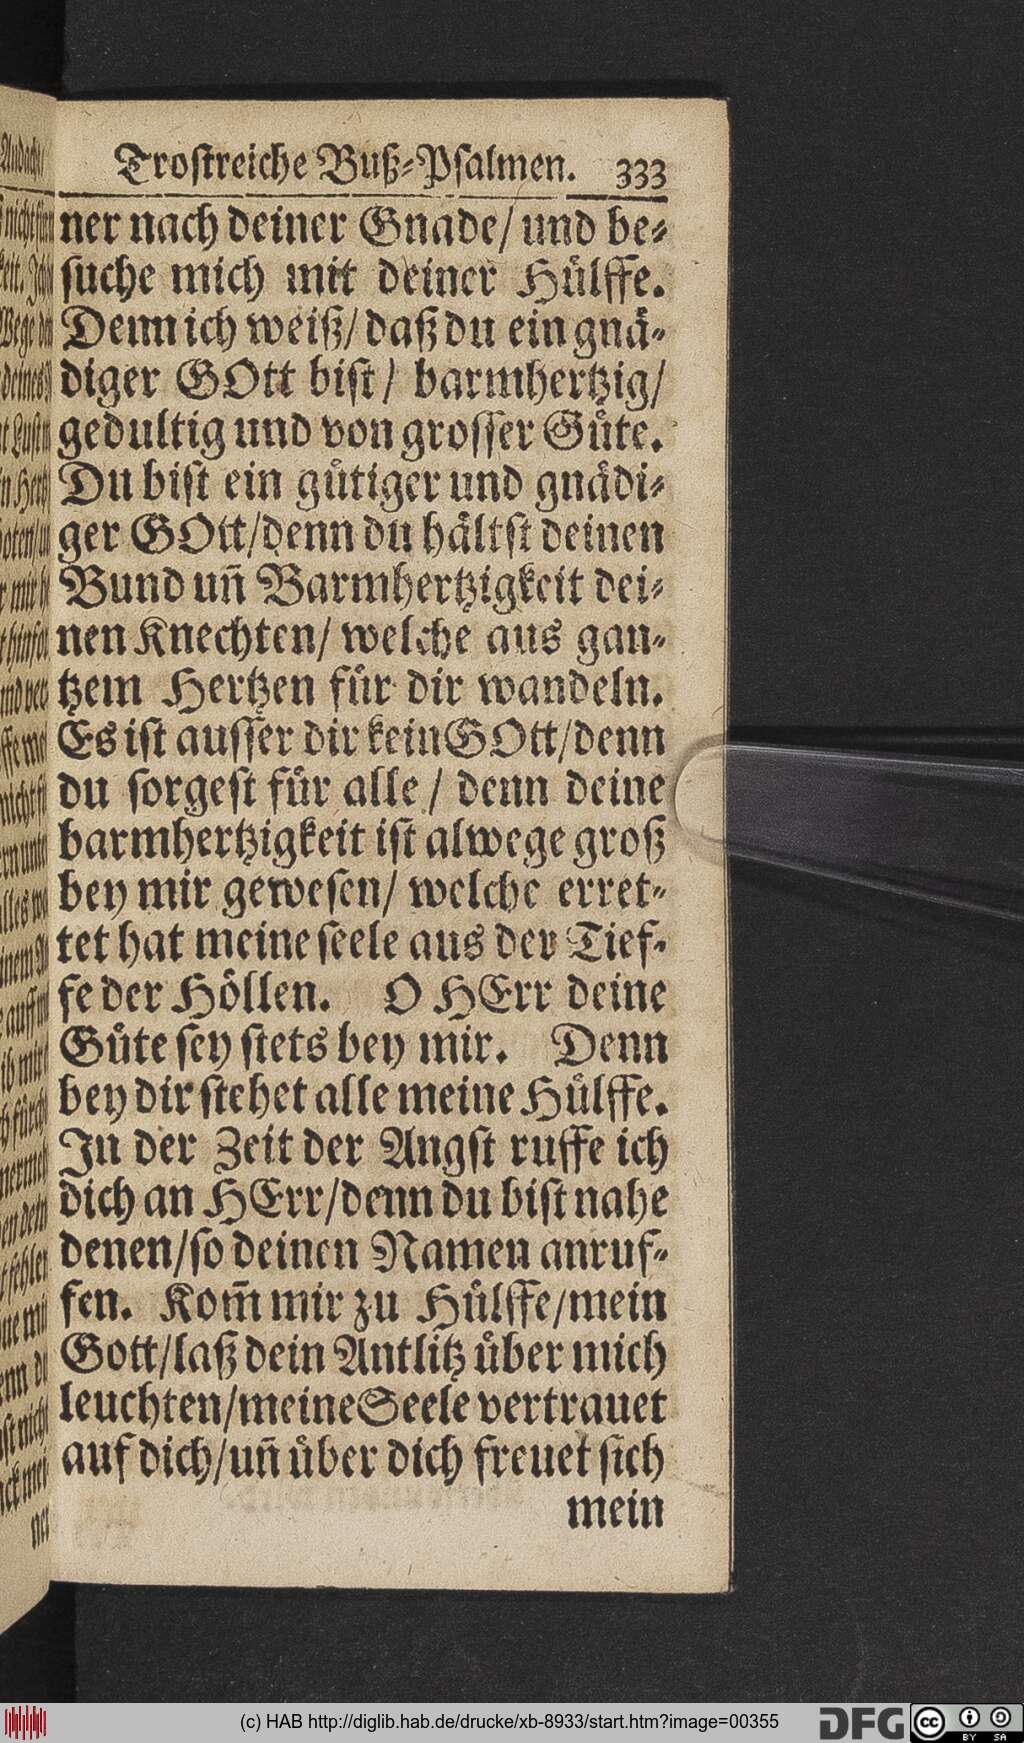 Troſtreiche Buß-Pſalmen. 333
ner nach deiner Gnade/ und be-
ſuche mich mit deiner Hülffe.
Denn ich weiß/ daß du ein gnä-
diger GOtt biſt/ barmhertzig/
gedultig und von groſſer Güte.
Du biſt ein gütiger und gnädi-
ger GOtt/denn du hältſt deinen
Bund uñ Barmhertzigkeit dei-
nen Knechten/ welche aus gan-
tzem Hertzen für dir wandeln.
Es iſt auſſer dir kein GOtt/denn
du ſorgeſt für alle / denn deine
barmhertzigkeit iſt alwege groß
bey mir geweſen/ welche erret-
tet hat meine ſeele aus der Tief-
fe der Höllen. O HErr deine
Güte ſey ſtets bey mir. Denn
bey dir ſtehet alle meine Hülffe.
In der Zeit der Angſt ruffe ich
dich an HErr/denn du biſt nahe
denen/ſo deinen Namen anruf-
fen. Kom̃ mir zu Hülffe/mein
Gott/laß dein Antlitz über mich
leuchten/meine Seele vertrauet
auf dich/uñ über dich freuet ſich
mein
(c) HAB http://diglib.hab.de/drucke/xb-8933/start.htm?image=00355
DFG
cc BY SA